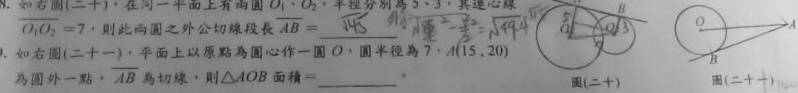 8. 如右圖(二十),在同一平面上有兩圓 O₁、O₂,半徑分別為 5、3,其連心線
O₁O₂ = 7,則此兩圓之外公切線段長 AB = √45
9. 如右圖(二十一),平面上以原點為圓心作一圓 O,圓半徑為 7,A(15,20)
為圓外一點,AB 為切線,則△AOB 面積=________。
5
B
3
圖(二十)
O
A
B
圖(二十一)